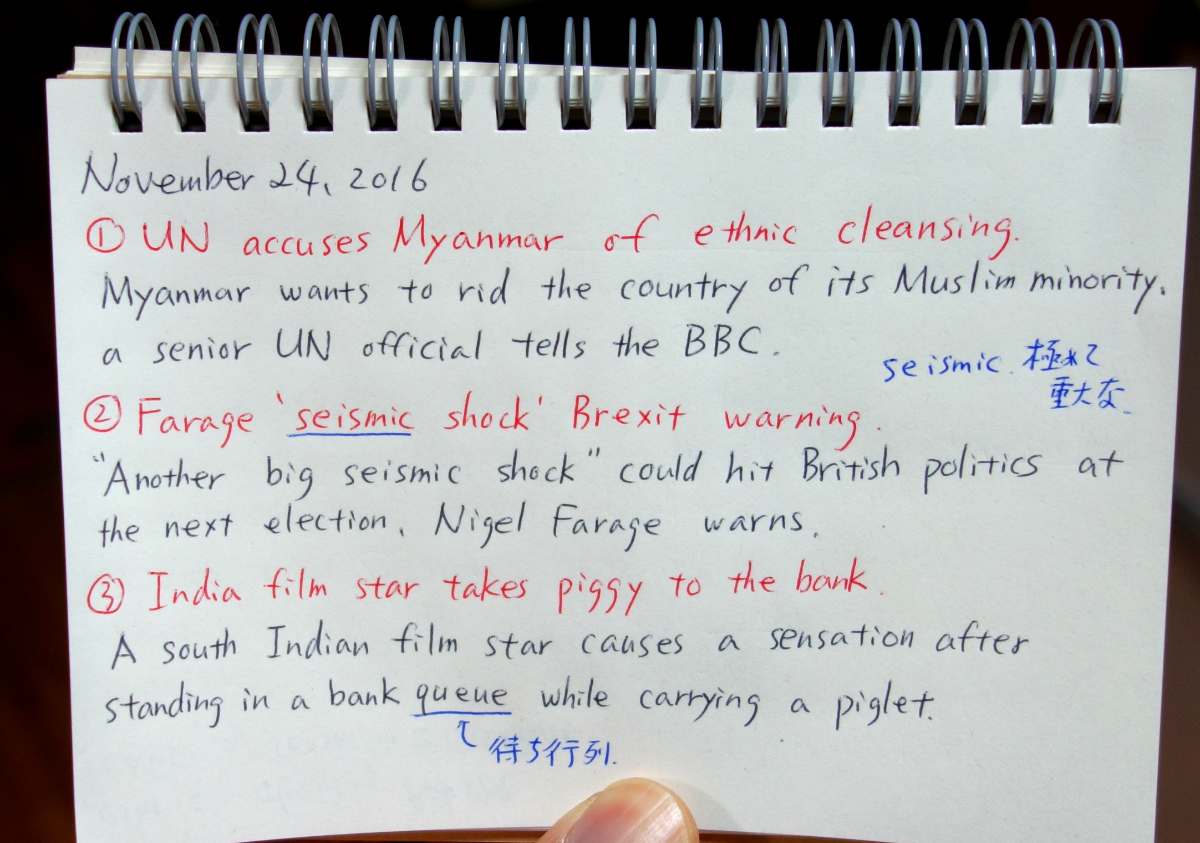 November 24, 2016
① UN accuses Myanmar of ethnic cleansing.
Myanmar wants to rid the country of its Muslim minority,
a senior UN official tells the BBC.
seismic. 極めて
重大な.
② Farage 'seismic shock' Brexit warning.
"Another big seismic shock" could hit British politics at
the next election, Nigel Farage warns.
③ India film star takes piggy to the bank.
A south Indian film star causes a sensation after
standing in a bank queue while carrying a piglet.
待ち行列.